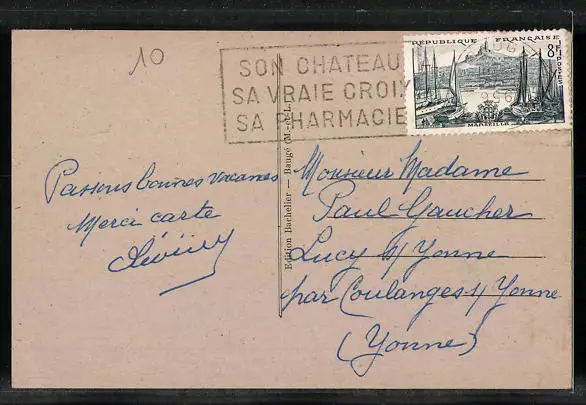 10
SON CHATEAU
SA VRAIE CROIX
SA PHARMACIE
REPUBLIQUE FRANÇAISE
8F
POSTES
MARSEILLE
Passons bonnes vacances
Merci carte
Edition Bachelier — Baugé (M.-et-L.)
Monsieur Madame
Paul Gaucher
Lucy s/ Yonne
par Coulanges s/ Yonne
(Yonne)